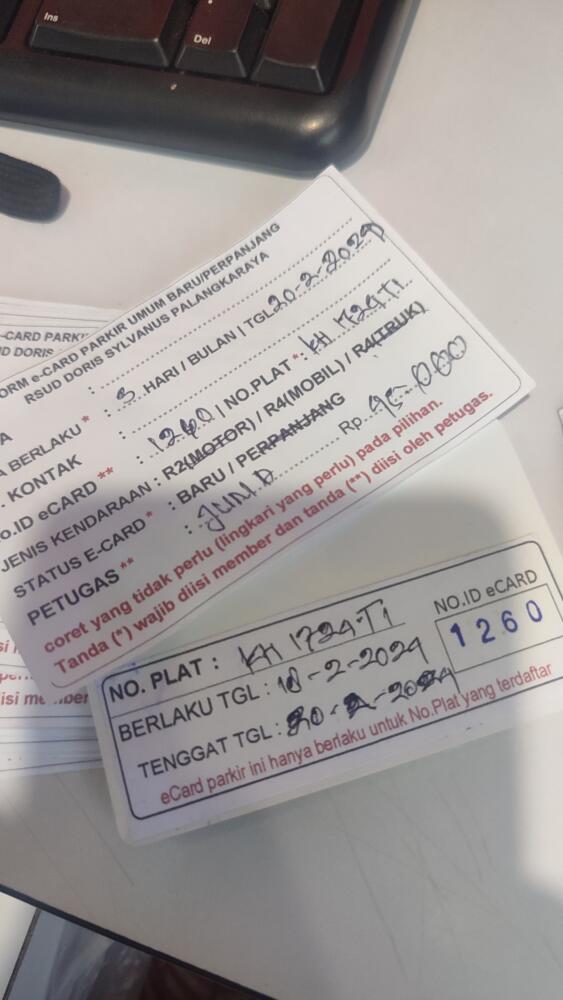 Ins
Del
-CARD PARKI
D DORIS
ORM e-CARD PARKIR UMUM BARU/PERPANJANG
RSUD DORIS SYLVANUS PALANGKARAYA
A :
A BERLAKU * : 3 HARI / BULAN | TGL 20-2-2024
. KONTAK :
o.ID eCARD ** : 1260 | NO.PLAT * : KH 1724 TI
JENIS KENDARAAN : R2(MOTOR) / R4(MOBIL) / R4(TRUK)
STATUS E-CARD * : BARU / PERPANJANG
PETUGAS ** : Rp.
coret yang tidak perlu (lingkari yang perlu) pada pilihan.
Tanda (*) wajib diisi member dan tanda (**) diisi oleh petugas.
NO. PLAT : KH 1724 TI
BERLAKU TGL : 18-2-2024
TENGGAT TGL : 20-2-2024
NO.ID eCARD
1260
eCard parkir ini hanya berlaku untuk No.Plat yang terdaftar